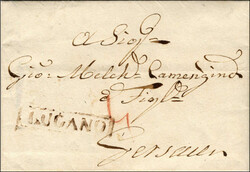 A Sig.r
Gio: Melch.r Camenzind
è Figl.o
LUGANO
Gersau